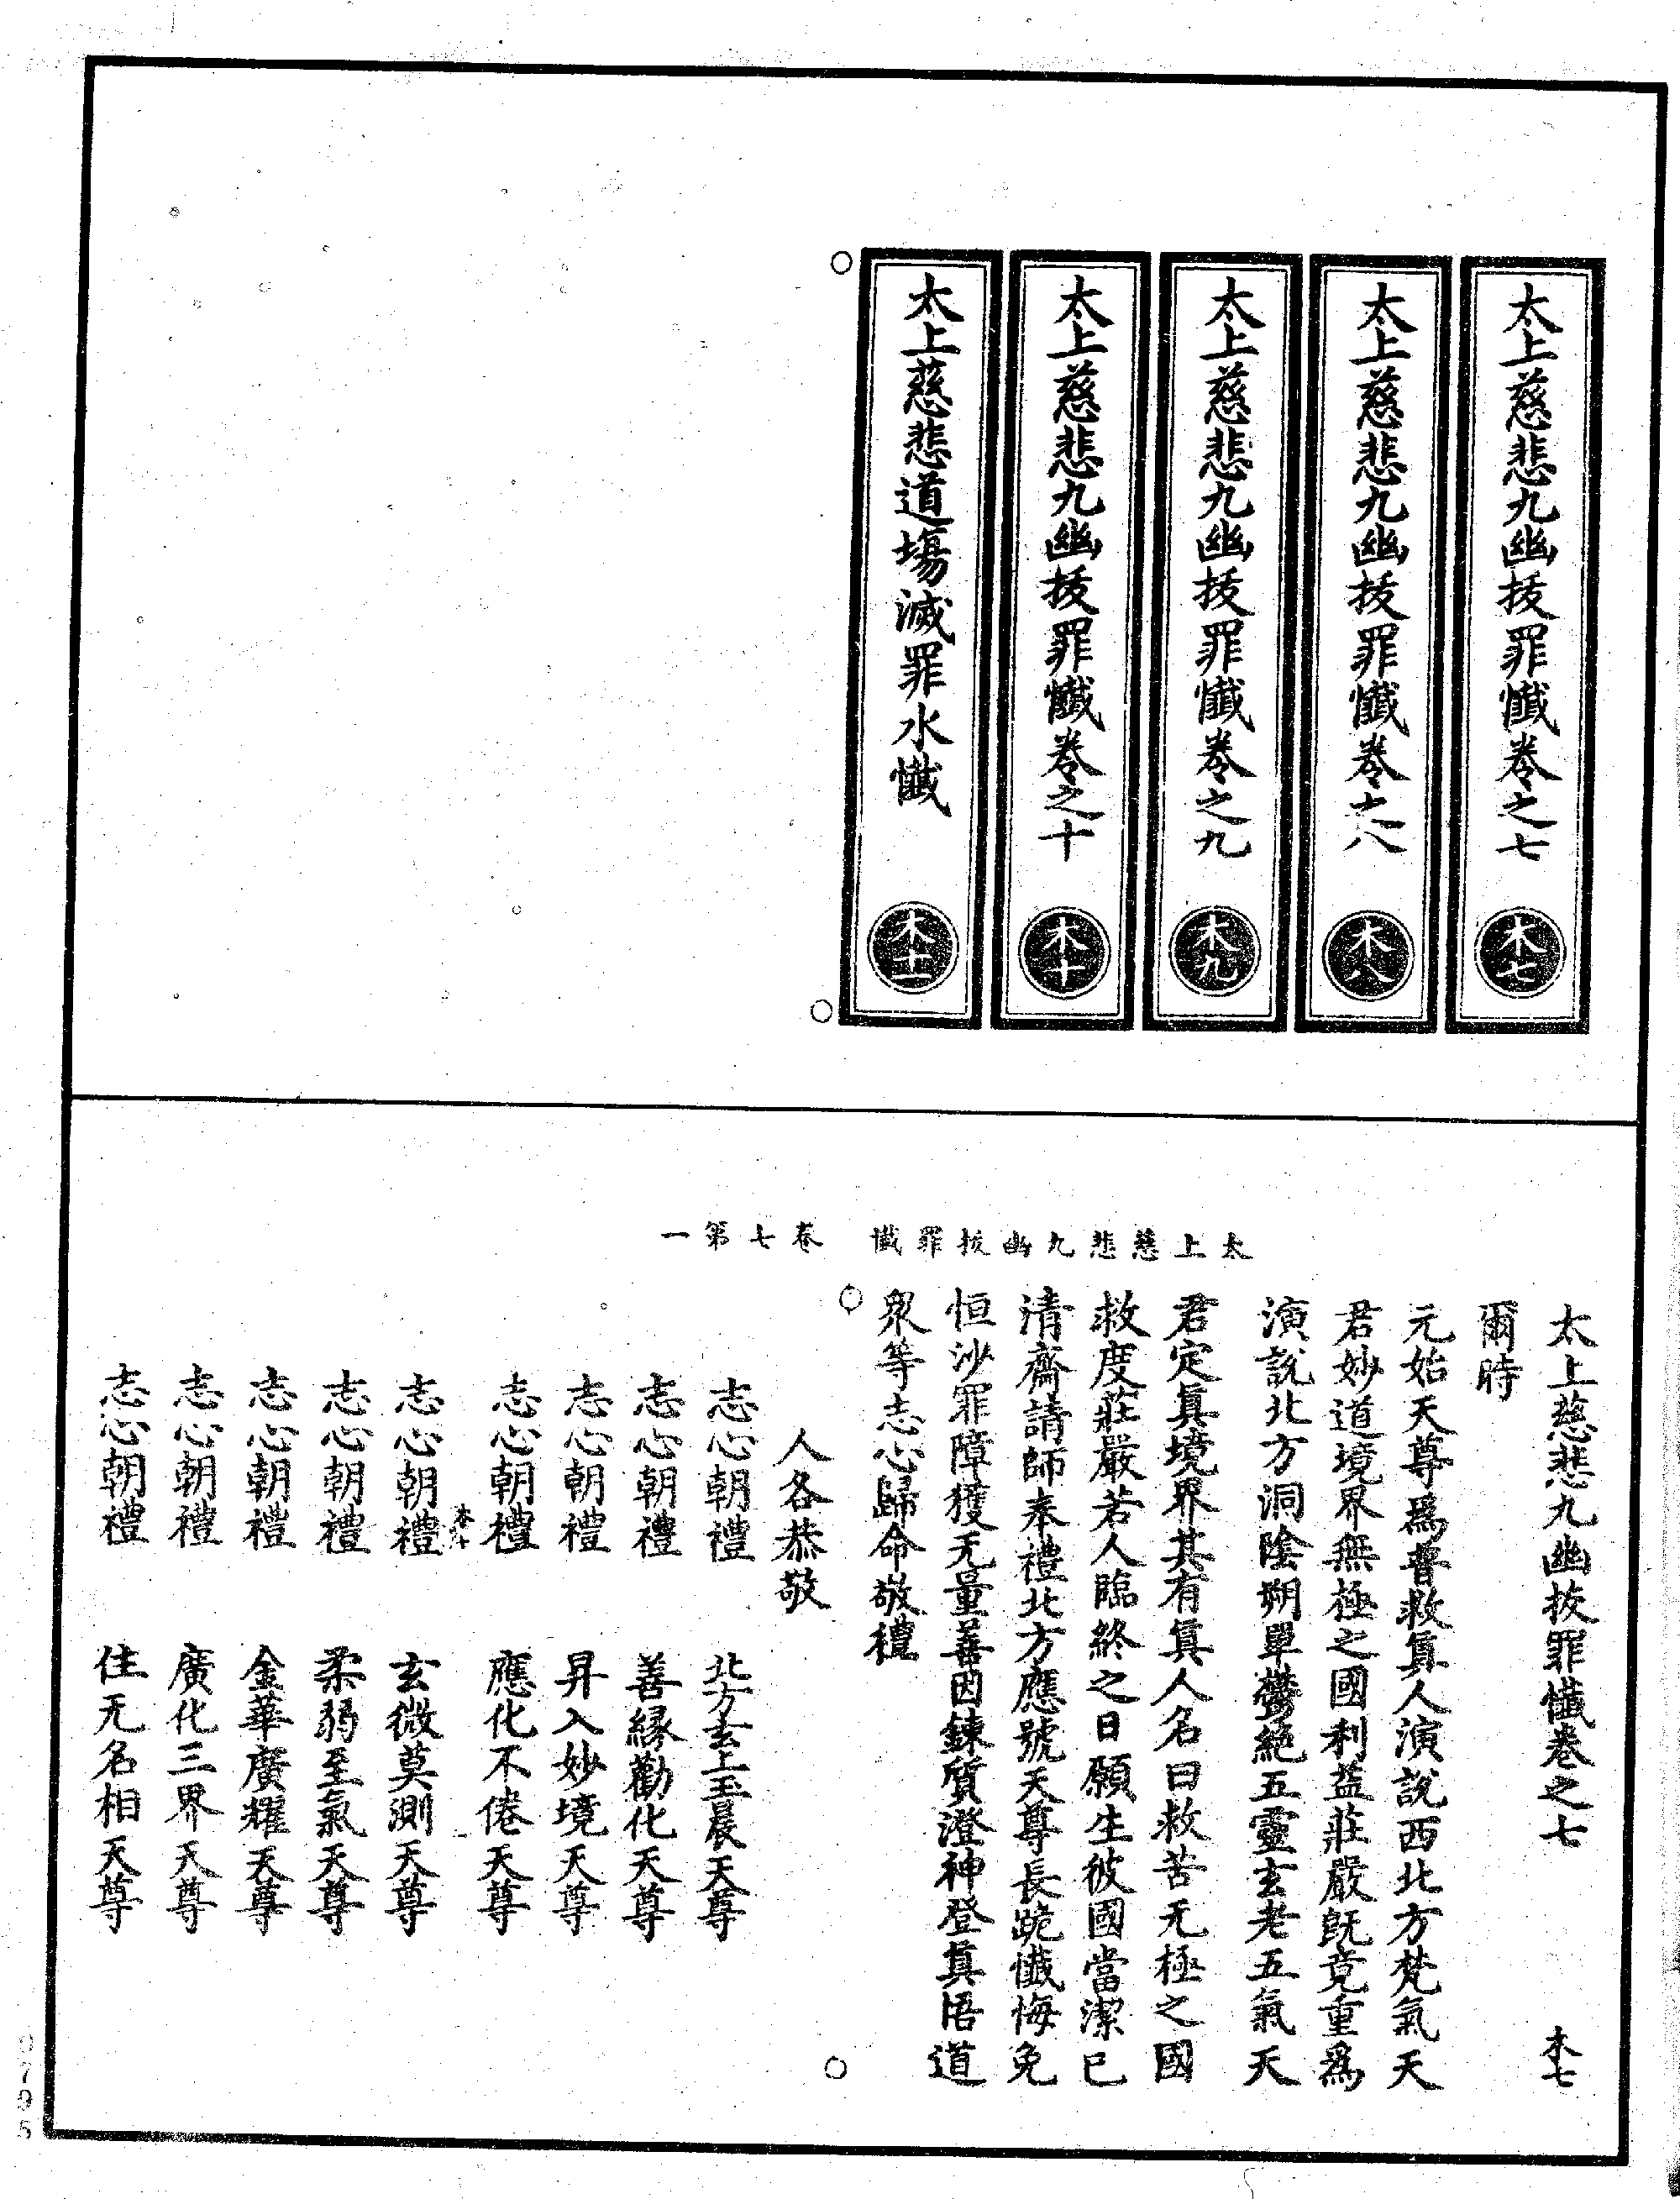 太上慈悲九幽拔罪懺卷之七 木七
太上慈悲九幽拔罪懺卷之八 木八
太上慈悲九幽拔罪懺卷之九 木九
太上慈悲九幽拔罪懺卷之十 木十
太上慈悲道場滅罪水懺 木十一
太上慈悲九幽拔罪懺 卷七第一
太上慈悲九幽拔罪懺卷之七 木七
爾時
元始天尊爲普救真人演說西北方梵氣天
君妙道境界無極之國利益莊嚴旣竟重爲
演說北方洞陰朔單鬱絕五靈玄老五氣天
君定真境界其有真人名曰救苦无極之國
救度莊嚴若人臨終之日願生彼國當潔已
清齋請師奉禮北方應號天尊長跪懺悔免
恒沙罪障獲无量善因鍊質澄神登真悟道
衆等志心歸命敬禮
人各恭敬
志心朝禮 北方玄上玉晨天尊
志心朝禮 善緣勸化天尊
志心朝禮 昇入妙境天尊
志心朝禮 應化不倦天尊
志心朝禮 玄微莫測天尊
志心朝禮 柔弱至氣天尊
志心朝禮 金華廣耀天尊
志心朝禮 廣化三界天尊
志心朝禮 住无名相天尊
0795